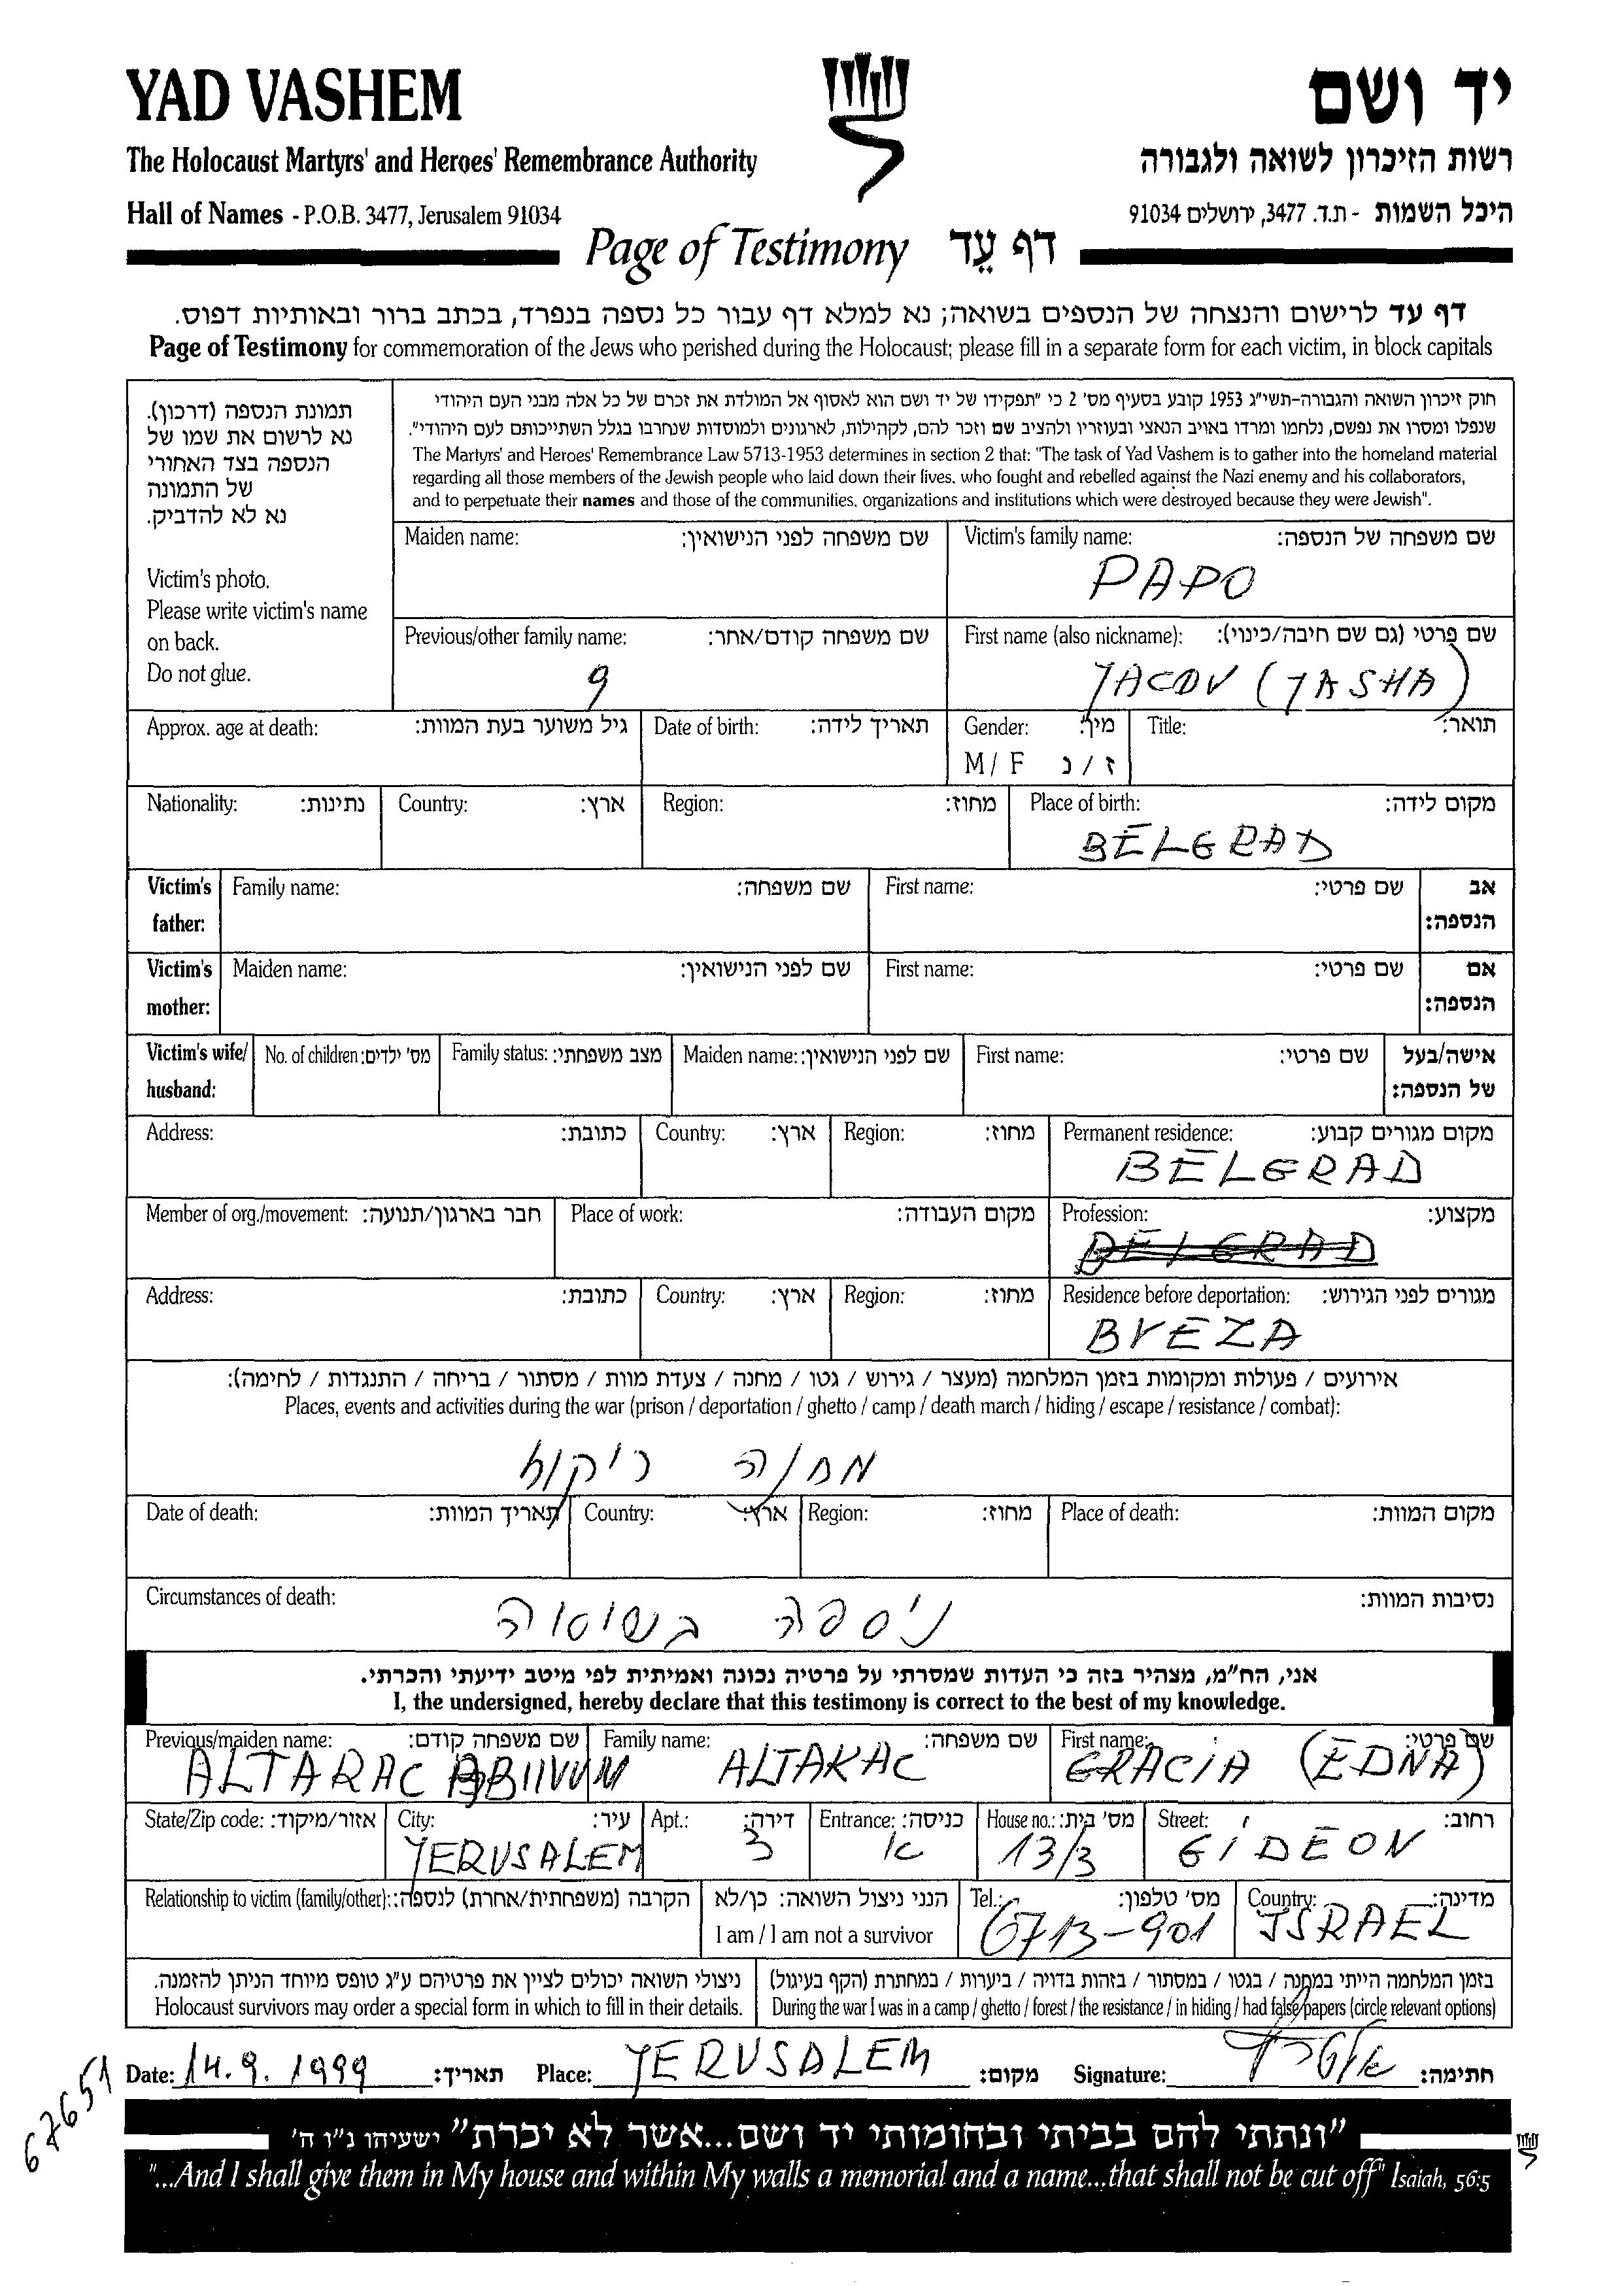 YAD VASHEM
יד ושם
The Holocaust Martyrs' and Heroes' Remembrance Authority
רשות הזיכרון לשואה ולגבורה
Hall of Names - P.O.B. 3477, Jerusalem 91034
היכל השמות - ת.ד. 3477, ירושלים 91034
Page of Testimony דף עֵד
דף עד לרישום והנצחה של הנספים בשואה; נא למלא דף עבור כל נספה בנפרד, בכתב ברור ובאותיות דפוס.
Page of Testimony for commemoration of the Jews who perished during the Holocaust; please fill in a separate form for each victim, in block capitals
תמונת הנספה (דרכון).
נא לרשום את שמו של
הנספה בצד האחורי
של התמונה
נא לא להדביק.
Victim's photo.
Please write victim's name
on back.
Do not glue.
חוק זיכרון השואה והגבורה-תשי"ג 1953 קובע בסעיף מס' 2 כי "תפקידו של יד ושם הוא לאסוף אל המולדת את זכרם של כל אלה מבני העם היהודי
שנפלו ומסרו את נפשם, נלחמו ומרדו באויב הנאצי ובעוזריו ולהציב שם וזכר להם, לקהילות, לארגונים ולמוסדות שנחרבו בגלל השתייכותם לעם היהודי".
The Martyrs' and Heroes' Remembrance Law 5713-1953 determines in section 2 that: "The task of Yad Vashem is to gather into the homeland material
regarding all those members of the Jewish people who laid down their lives, who fought and rebelled against the Nazi enemy and his collaborators,
and to perpetuate their names and those of the communities, organizations and institutions which were destroyed because they were Jewish".
Maiden name: שם משפחה לפני הנישואין:
Victim's family name: שם משפחה של הנספה:
PAPO
Previous/other family name: שם משפחה קודם/אחר:
First name (also nickname): שם פרטי (גם שם חיבה/כינוי):
9
JACOV (JASHA)
Approx. age at death: גיל משוער בעת המוות:
Date of birth: תאריך לידה:
Gender: מין:
Title: תואר:
M / F ז / נ
Nationality: נתינות:
Country: ארץ:
Region: מחוז:
Place of birth: מקום לידה:
BELGRAD
Victim's father: Family name: שם משפחה: First name: שם פרטי: אב הנספה:
Victim's mother: Maiden name: שם לפני הנישואין: First name: שם פרטי: אם הנספה:
Victim's wife/ husband: No. of children: מס' ילדים: Family status: מצב משפחתי: Maiden name: שם לפני הנישואין: First name: שם פרטי: אישה/בעל של הנספה:
Address: כתובת: Country: ארץ: Region: מחוז: Permanent residence: מקום מגורים קבוע:
BELGRAD
Member of org./movement: חבר בארגון/תנועה: Place of work: מקום העבודה: Profession: מקצוע:
BELGRAD
Address: כתובת: Country: ארץ: Region: מחוז: Residence before deportation: מגורים לפני הגירוש:
BREZA
אירועים / פעולות ומקומות בזמן המלחמה (מעצר / גירוש / גטו / מחנה / צעדת מוות / מסתור / בריחה / התנגדות / לחימה):
Places, events and activities during the war (prison / deportation / ghetto / camp / death march / hiding / escape / resistance / combat):
מחנה ריכוז
Date of death: תאריך המוות: Country: ארץ: Region: מחוז: Place of death: מקום המוות:
Circumstances of death: נסיבות המוות:
ניספה בשואה
אני, הח"מ, מצהיר בזה כי העדות שמסרתי על פרטיה נכונה ואמיתית לפי מיטב ידיעתי והכרתי.
I, the undersigned, hereby declare that this testimony is correct to the best of my knowledge.
Previous/maiden name: שם משפחה קודם: Family name: שם משפחה: First name: שם פרטי:
ALTARAC ALTARAC GRACIA (EDNA)
State/Zip code: אזור/מיקוד: City: עיר: Apt.: דירה: Entrance: כניסה: House no.: מס' בית: Street: רחוב:
YERUSALEM 3 א 13/3 GIDEON
Relationship to victim (family/other): הקרבה (משפחתית/אחרת) לנספה: הנני ניצול השואה: כן/לא Tel.: מס' טלפון: Country: מדינה:
I am / I am not a survivor
6713-901 ISRAEL
ניצולי השואה יכולים לציין את פרטיהם ע"ג טופס מיוחד הניתן להזמנה.
Holocaust survivors may order a special form in which to fill in their details.
בזמן המלחמה הייתי במחנה / בגטו / במסתור / בזהות בדויה / ביערות / במחתרת (הקף בעיגול)
During the war I was in a camp / ghetto / forest / the resistance / in hiding / had false papers (circle relevant options)
Date: 14.9.1999 תאריך: Place: YERUSALEM מקום: Signature: חתימה:
67651
"ונתתי להם בביתי ובחומותי יד ושם...אשר לא יכרת" ישעיהו נ"ו ה'
"...And I shall give them in My house and within My walls a memorial and a name...that shall not be cut off" Isaiah, 56:5